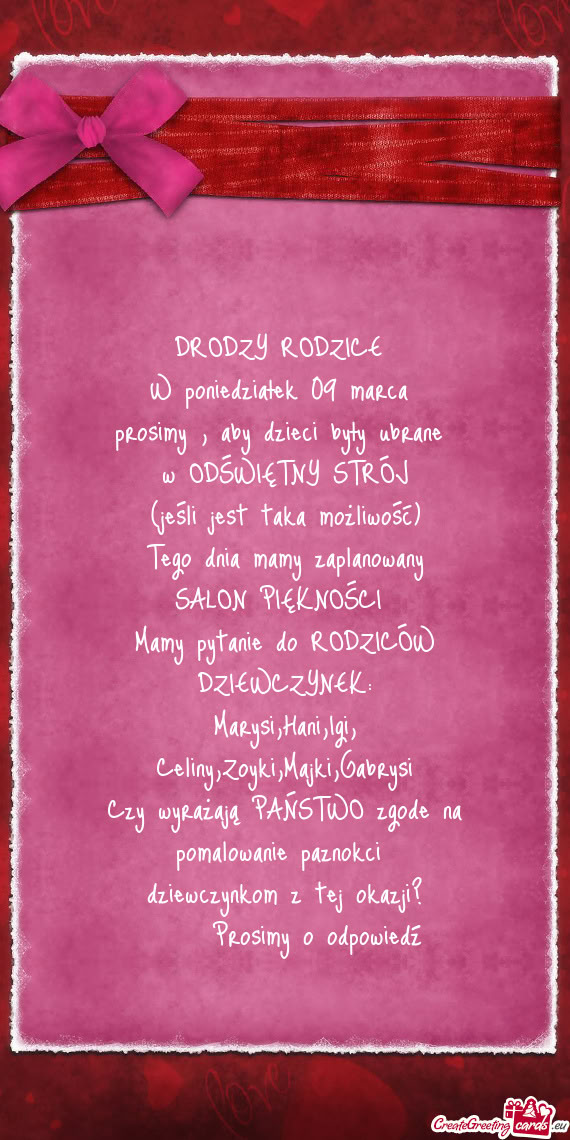 DRODZY RODZICE
W poniedziałek 09 marca
prosimy , aby dzieci były ubrane
w ODŚWIĘTNY STRÓJ
(jeśli jest taka możliwość)
Tego dnia mamy zaplanowany
SALON PIĘKNOŚCI
Mamy pytanie do RODZICÓW
DZIEWCZYNEK:
Marysi,Hani,Igi,
Celiny,Zoyki,Majki,Gabrysi
Czy wyrażają PAŃSTWO zgode na
pomalowanie paznokci
dziewczynkom z tej okazji?
Prosimy o odpowiedź
love
CreateGreetingcards.eu